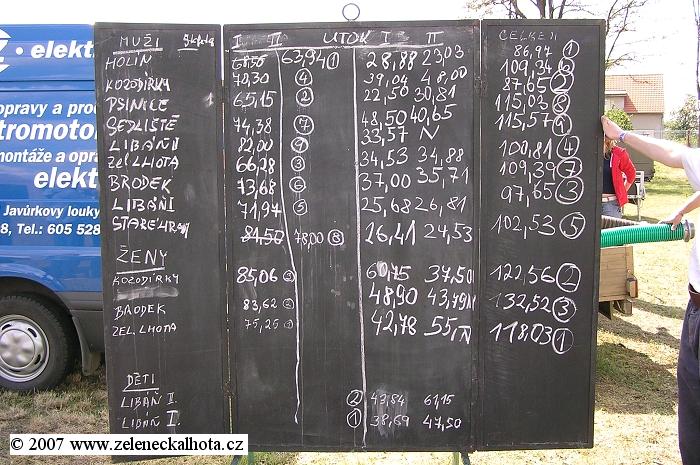 • elekt
opravy a pro
tromotor
montáže a opra
elekt
Javůrkovy louky
8, Tel.: 605 528
MUŽI I II ÚTOK I II CELKEM
HOLIN 63,94 ① 28,88 23,03 86,97 ①
KOZODÍRKY 70,30 ④ 39,04 48,00 109,34 ⑥
PSINICE 65,15 ② 22,50 30,81 87,65 ②
SEDLIŠTĚ 74,38 ⑦ 48,50 40,65 115,03 ⑧
LIBÁŇ 82,00 ⑨ 33,57 N 115,57 ⑨
ZEL. LHOTA 66,28 ③ 34,53 34,88 100,81 ④
BRODEK 73,68 ⑥ 37,00 35,71 109,39 ⑦
LIBÁŇ I 71,97 ⑤ 25,68 26,81 97,65 ③
STARÉ HRADY 84,50 78,00 ⑧ 26,41 24,53 102,53 ⑤
ŽENY
KOZODÍRKY 85,06 ③ 60,75 37,50 122,56 ②
BRODEK 83,62 ② 48,90 43,79N 132,52 ③
ZEL. LHOTA 75,25 ① 42,78 55,N 118,03 ①
DĚTI
LIBÁŇ II. ② 43,84 61,15
LIBÁŇ I. ① 38,69 47,50
© 2007 www.zeleneckalhota.cz